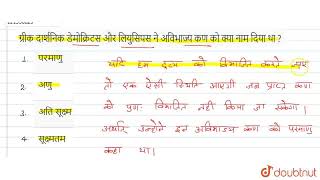 ग्रीक दार्शनिक डेमोक्रिटस और लियुसिपस ने अविभाज्य कण को क्या नाम दिया था ?
1. परमाणु
यदि हम द्रव्य को विभाजित करते जाएं
2. अणु
तो एक ऐसी स्थिति आएगी जब प्राप्त कण
3. अति सूक्ष्म
को पुनः विभाजित नहीं किया जा सकेगा।
अर्थात् उन्होंने इन अविभाज्य कण को परमाणु
4 सूक्ष्मतम
कहा था।
doubtnut